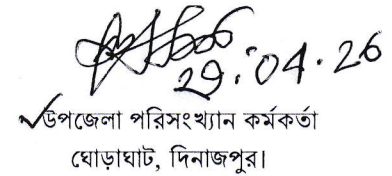 29.04.26
উপজেলা পরিসংখ্যান কর্মকর্তা
ঘোড়াঘাট, দিনাজপুর।